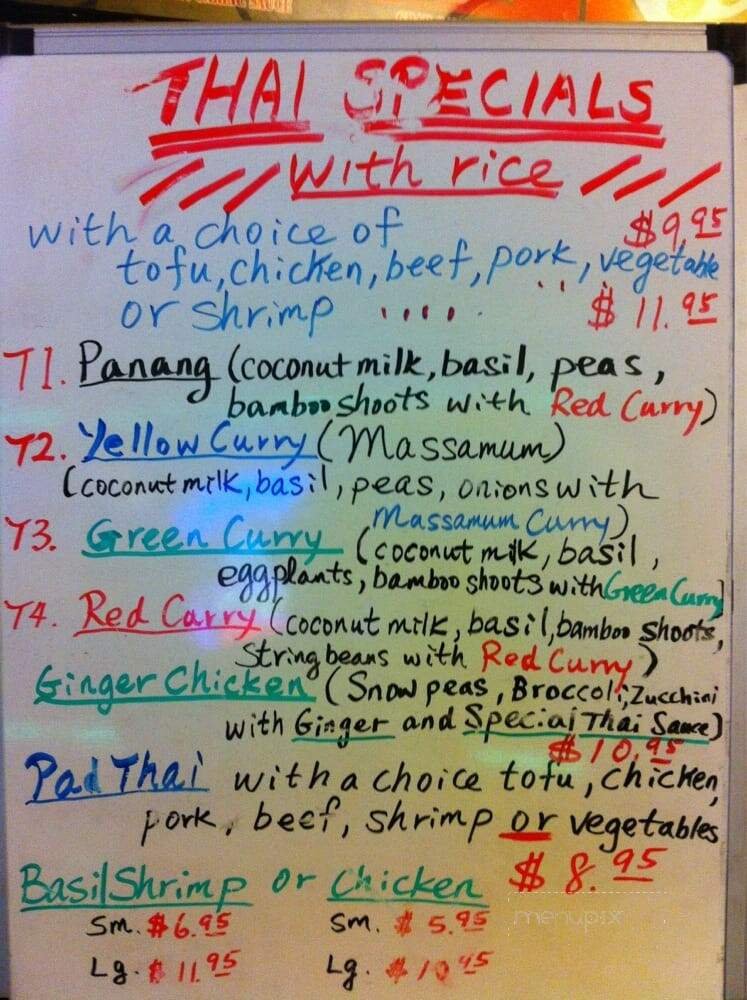 THAI SPECIALS
with rice
with a choice of $9.95
tofu, chicken, beef, pork, vegetable
or shrimp .... $11.95
T1. Panang (coconut milk, basil, peas,
bamboo shoots with Red Curry)
T2. Yellow Curry (Massamum)
(coconut milk, basil, peas, onions with
Massamum Curry)
T3. Green Curry (coconut milk, basil,
eggplants, bamboo shoots with Green Curry)
T4. Red Curry (coconut milk, basil, bamboo shoots,
String beans with Red Curry)
Ginger Chicken (Snow peas, Broccoli, Zucchini
with Ginger and Special Thai Sauce)
$10.95
Pad Thai with a choice tofu, chicken,
pork, beef, shrimp or vegetables
$8.95
Basil Shrimp or Chicken
Sm. $6.95 Sm. $5.95
Lg. $11.95 Lg. $10.95
menupix